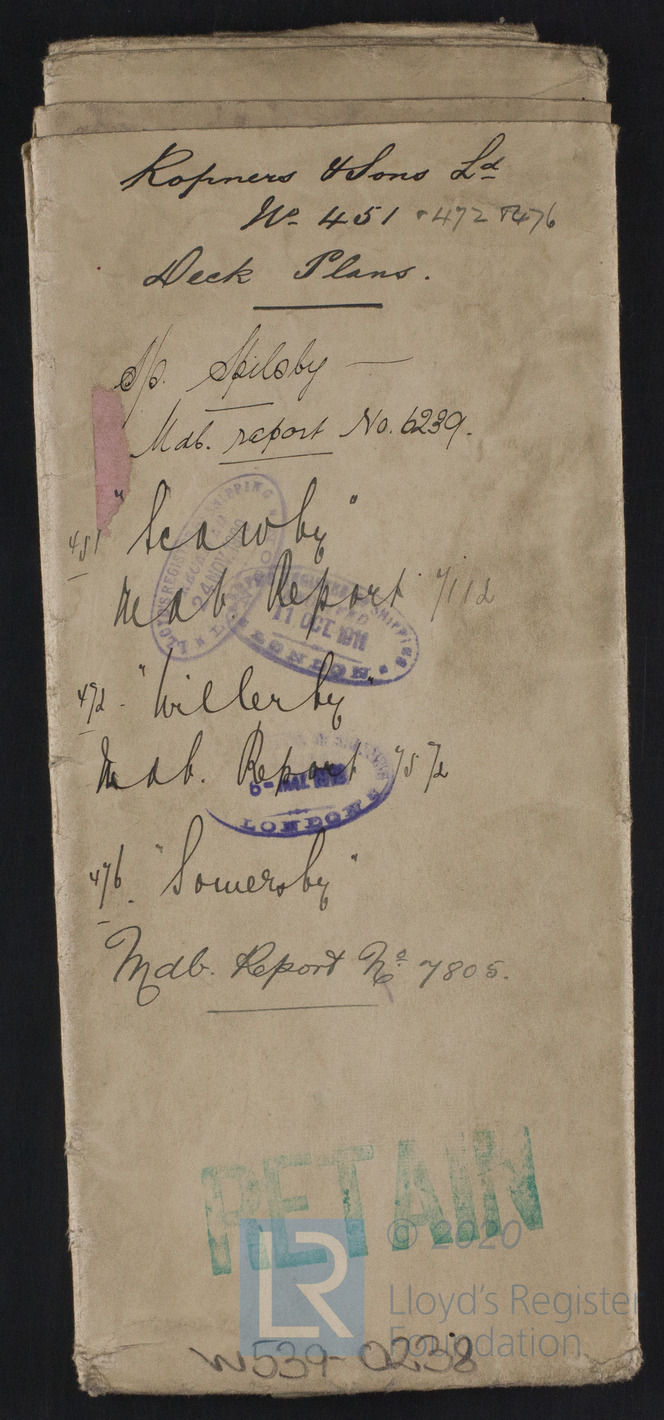 Ropners & Sons Ld
No 451 · 472 & 476
Deck Plans.
Sp. Spilsby —
Mdb. report No. 6239.
451 "Scawby"
Mdb. Report 7112
LLOYD'S REGISTER SHIPPING
24 NOV
11 OCT 1911
LONDON
472 - "Willerby"
Mdb. Report 7572
LONDON
476. "Somersby"
Mdb. Report No 7805.
RETAIN
LR
© 2020
Lloyd's Register
Foundation
W539-0238